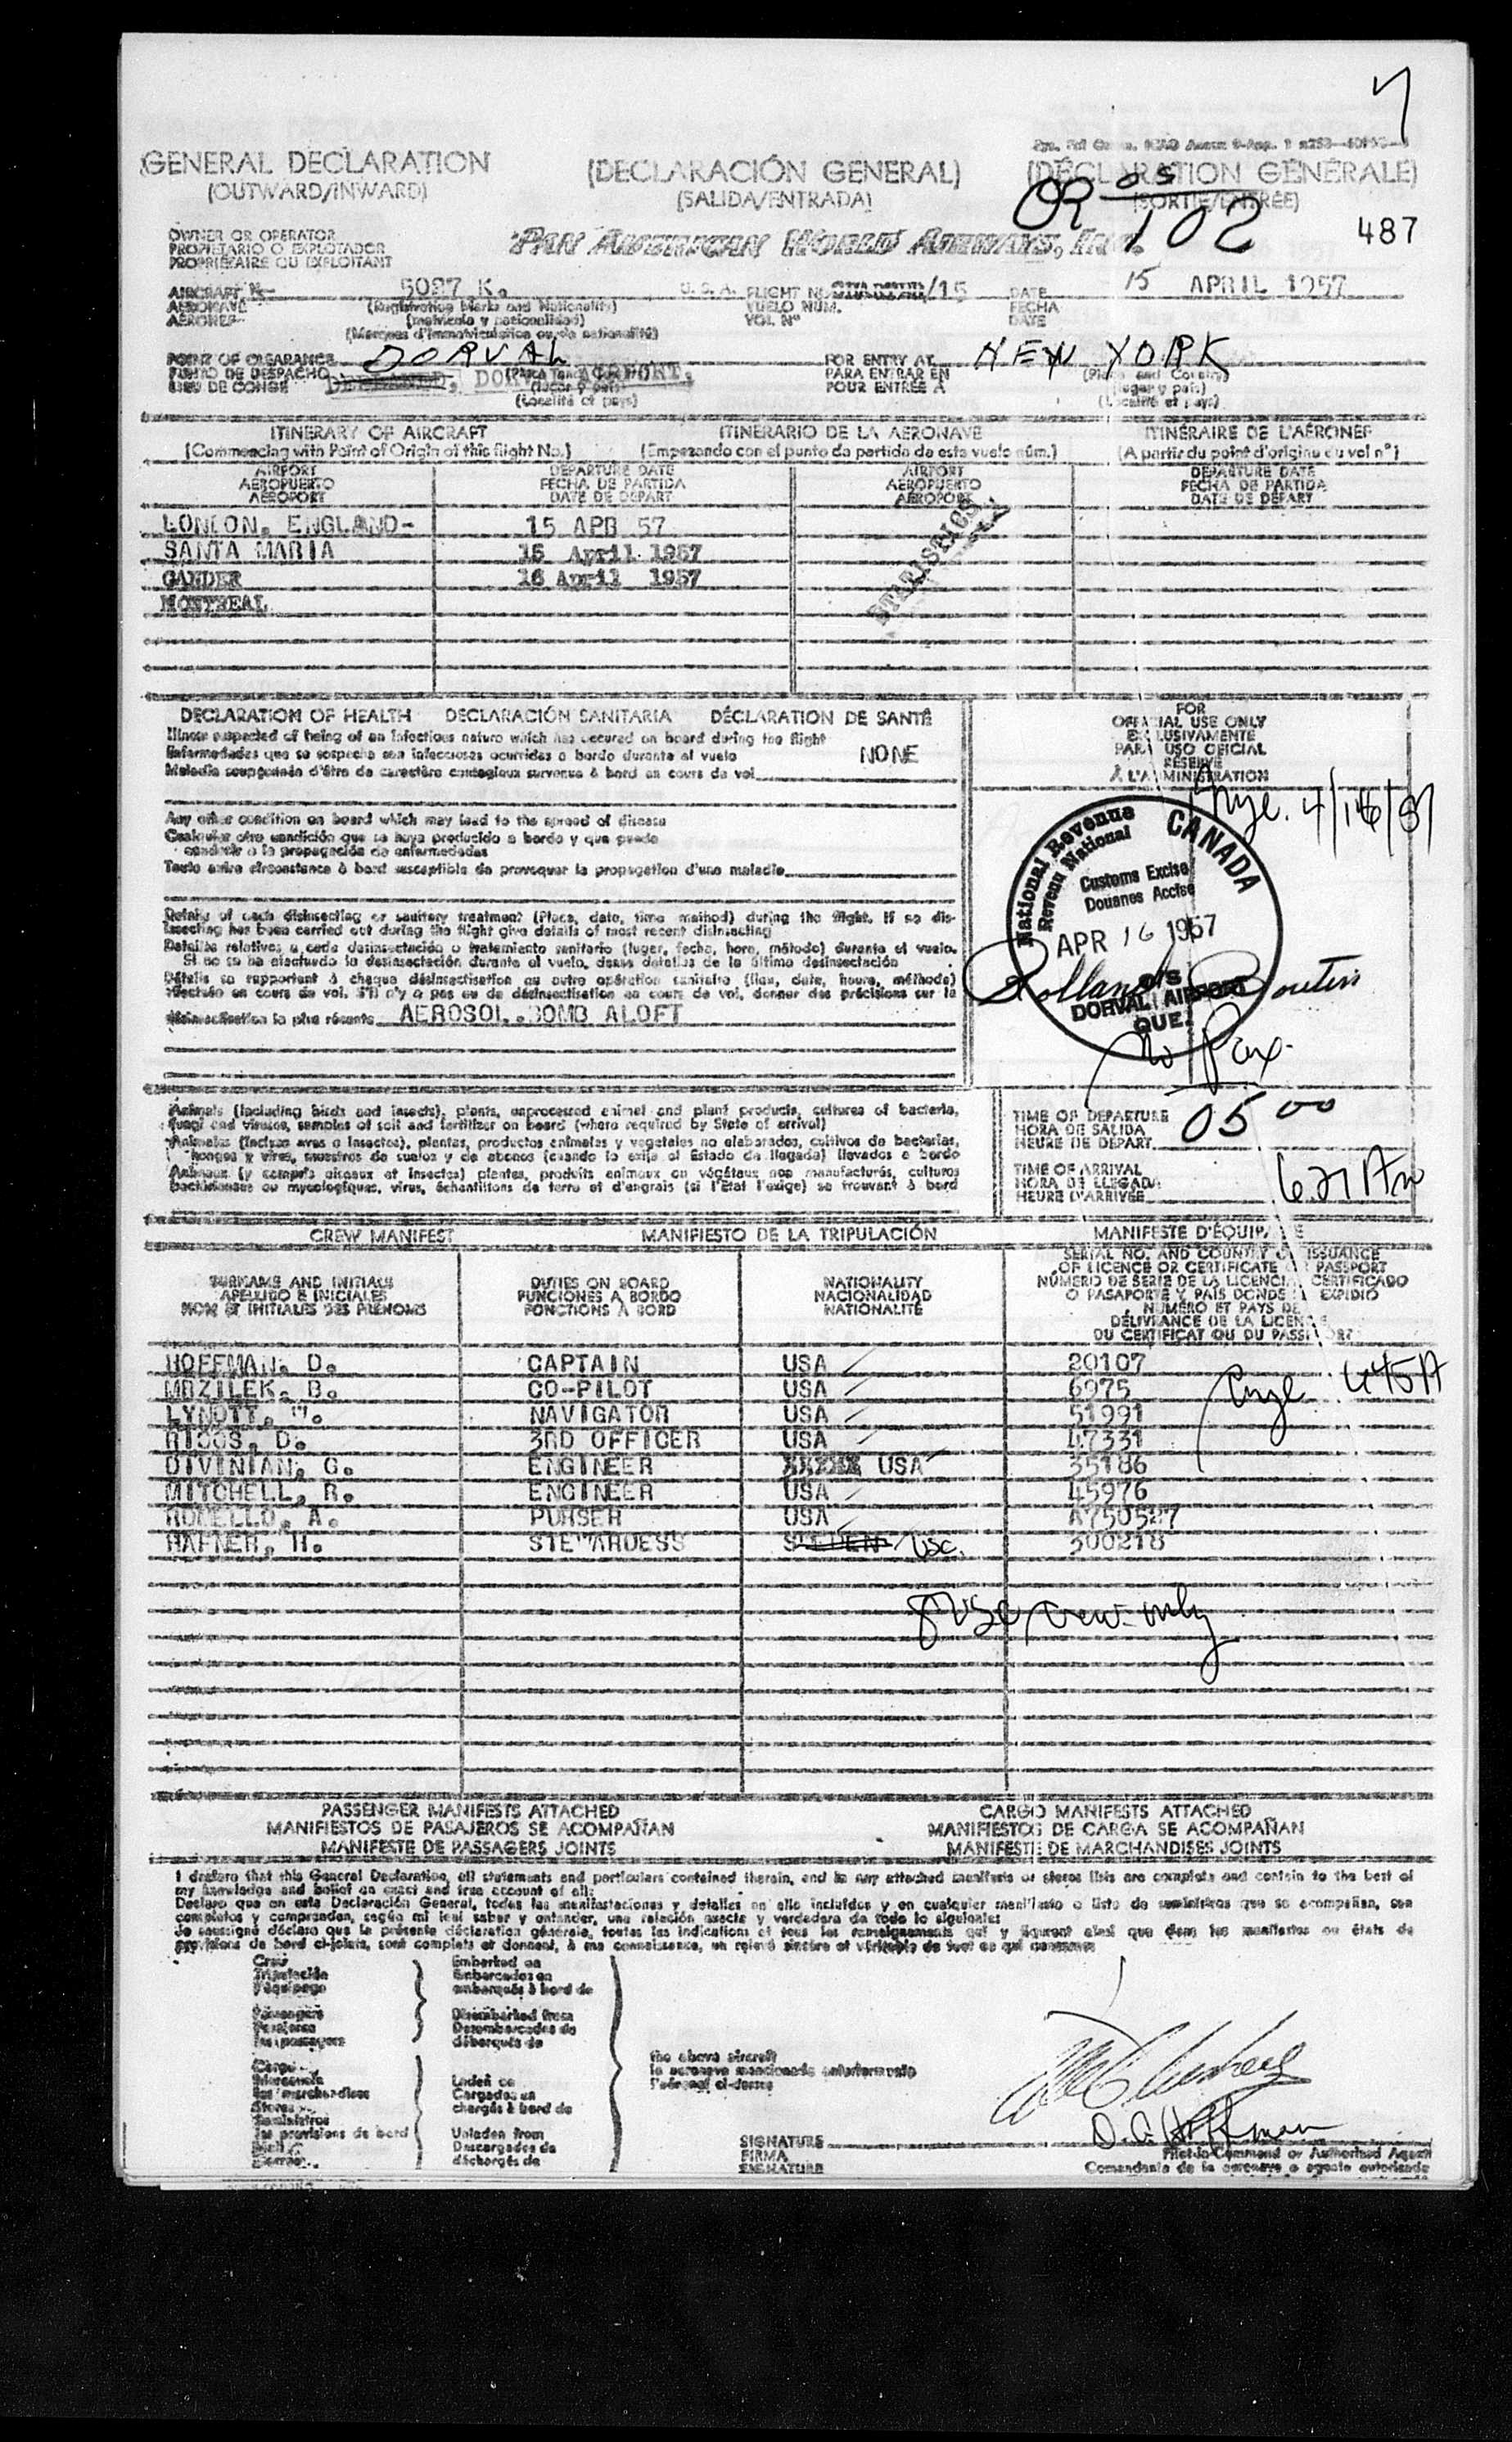 GENERAL DECLARATION
(OUTWARD/INWARD)
(DECLARACIÓN GENERAL)
(SALIDA/ENTRADA)
(DÉCLARATION GÉNÉRALE)
(SORTIE/ENTRÉE)
OR 102
487
OWNER OR OPERATOR
PROPIETARIO O EXPLOTADOR
PROPRIÉTAIRE OU EXPLOITANT
PAN AMERICAN WORLD AIRWAYS, INC.
AIRCRAFT N- 5027 K. U. S. A. FLIGHT NO. /15 DATE 15 APRIL 1957
AERONAVE (Registration Marks and Nationality) VUELO NUM. FECHA
AÉRONEF (matrícula y nacionalidad) VOL N° DATE
(Marques d'immatriculation ou de nationalité)
POINT OF CLEARANCE DORVAL FOR ENTRY AT NEW YORK
PUNTO DE DESPACHO PARA ENTRAR EN (Place and Country)
LIEU DE CONGÉ POUR ENTRÉE À (lugar y país)
(Localité et pays) (Localité et pays)
ITINERARY OF AIRCRAFT ITINERARIO DE LA AERONAVE ITINÉRAIRE DE L'AÉRONEF
(Commencing with Point of Origin of this flight No.) (Empezando con el punto de partida de este vuelo núm.) (A partir du point d'origine du vol n°)
AIRPORT DEPARTURE DATE AIRPORT DEPARTURE DATE
AEROPUERTO FECHA DE PARTIDA AEROPUERTO FECHA DE PARTIDA
AÉROPORT DATE DE DÉPART AÉROPORT DATE DE DÉPART
LONDON, ENGLAND- 15 APR 57
SANTA MARIA 15 April 1957
GANDER 16 April 1957
MONTREAL
STATISTICS
DECLARATION OF HEALTH DECLARACIÓN SANITARIA DÉCLARATION DE SANTÉ
Illness suspected of being of an infectious nature which has occured on board during the flight
Enfermedades que se sospecha son infecciosas ocurridas a bordo durante el vuelo NONE
Maladie soupçonnée d'être de caractère contagieux survenue à bord en cours de vol
Any other condition on board which may lead to the spread of disease
Cualquier otra condición que se haya producido a bordo y que pueda
conducir a la propagación de enfermedades
Toute autre circonstance à bord susceptible de provoquer la propagation d'une maladie
Details of each disinsecting or sanitary treatment (Place, date, time method) during the flight. If no dis-
insecting has been carried out during the flight give details of most recent disinsecting
Detalles relativos a cada desinsectación o tratamiento sanitario (lugar, fecha, hora, método) durante el vuelo.
Si no se ha efectuado la desinsectación durante el vuelo, dense detalles de la última desinsectación
Détails se rapportant à chaque désinsectisation ou autre opération sanitaire (lieu, date, heure, méthode)
effectuée en cours de vol. S'il n'y a pas eu de désinsectisation en cours de vol, donner des précisions sur la
désinsectisation la plus récente AEROSOL BOMB ALOFT
FOR
OFFICIAL USE ONLY
EXCLUSIVAMENTE
PARA USO OFICIAL
RÉSERVÉ
À L'ADMINISTRATION
4/16/57
National Revenue CANADA
Revenu National
Customs Excise
Douanes Accise
APR 16 1957
DORVAL AIRPORT
QUE.
No Pax.
Animals (including birds and insects), plants, unprocessed animal and plant products, cultures of bacteria,
fungi and viruses, samples of soil and fertilizer on board (where required by State of arrival)
Animales (inclusa aves o insectos), plantas, productos animales y vegetales no elaborados, cultivos de bacterias,
hongos y virus, muestras de suelos y de abonos (cuando lo exija el Estado de llegada) llevados a bordo
Animaux (y compris oiseaux et insectes) plantes, produits animaux ou végétaux non manufacturés, cultures
bactériennes ou mycologiques, virus, échantillons de terre et d'engrais (si l'Etat l'exige) se trouvant à bord
TIME OF DEPARTURE
HORA DE SALIDA
HEURE DE DÉPART 05 00
TIME OF ARRIVAL
HORA DE LLEGADA
HEURE D'ARRIVÉE 6.21 Am
CREW MANIFEST MANIFIESTO DE LA TRIPULACIÓN MANIFESTE D'ÉQUIPAGE
SURNAME AND INITIALS DUTIES ON BOARD NATIONALITY SERIAL NO. AND COUNTRY OF ISSUANCE
APELLIDO E INICIALES FUNCIONES A BORDO NACIONALIDAD OF LICENCE OR CERTIFICATE OR PASSPORT
NOM ET INITIALES DES PRÉNOMS FONCTIONS À BORD NATIONALITÉ NÚMERO DE SERIE DE LA LICENCIA, CERTIFICADO
O PASAPORTE Y PAÍS DONDE SE EXPIDIÓ
NUMÉRO ET PAYS DE
DÉLIVRANCE DE LA LICENCE
DU CERTIFICAT OU DU PASSEPORT
HOFFMAN, D. CAPTAIN USA 20107
MRZILEK, B. CO-PILOT USA 6975 645A
LYNOTT, NAVIGATOR USA 51991
RIGGS, D. 3RD OFFICER USA 47331
DIVINIAN, G. ENGINEER XXXXX USA 35186
MITCHELL, R. ENGINEER USA 45976
ROMELLO, A. PURSER USA A750527
HAFNER, H. STEWARDESS SWEDEN USC. 300218
8 USC crew only
PASSENGER MANIFESTS ATTACHED CARGO MANIFESTS ATTACHED
MANIFIESTOS DE PASAJEROS SE ACOMPAÑAN MANIFIESTOS DE CARGA SE ACOMPAÑAN
MANIFESTE DE PASSAGERS JOINTS MANIFESTE DE MARCHANDISES JOINTS
I declare that this General Declaration, all statements and particulars contained therein, and in any attached manifests or stores lists are complete and contain to the best of
my knowledge and belief an exact and true account of all:
Declaro que en esta Declaración General, todas las manifestaciones y detalles en ella incluidos y en cualquier manifiesto o lista de suministros que se acompañan, son
completos y comprenden, según mi leal saber y entender, una relación exacta y verdadera de todo lo siguiente:
Je soussigné déclare que la présente déclaration générale, toutes les indications et tous les renseignements qui y figurent ainsi que dans les manifestes ou états de
provisions de bord ci-joints, sont complets et donnent, à ma connaissance, un relevé sincère et véritable de tout ce qui concerne
Crew Embarked on
Tripulación Embarcados en
l'équipage embarqués à bord de
Passengers Disembarked from
Pasajeros Desembarcados de
les passagers débarqués de
the above aircraft
la aeronave mencionada anteriormente
l'aéronef ci-dessus
Cargo
Mercancía Laden on
les marchandises Cargados en
Stores chargés à bord de
Suministros
les provisions de bord Unladen from
Mail Descargados de
Correo déchargés de
SIGNATURE D. A. Hoffman
FIRMA Pilot-in-Command or Authorized Agent
SIGNATURE Comandante de la aeronave o agente autorizado